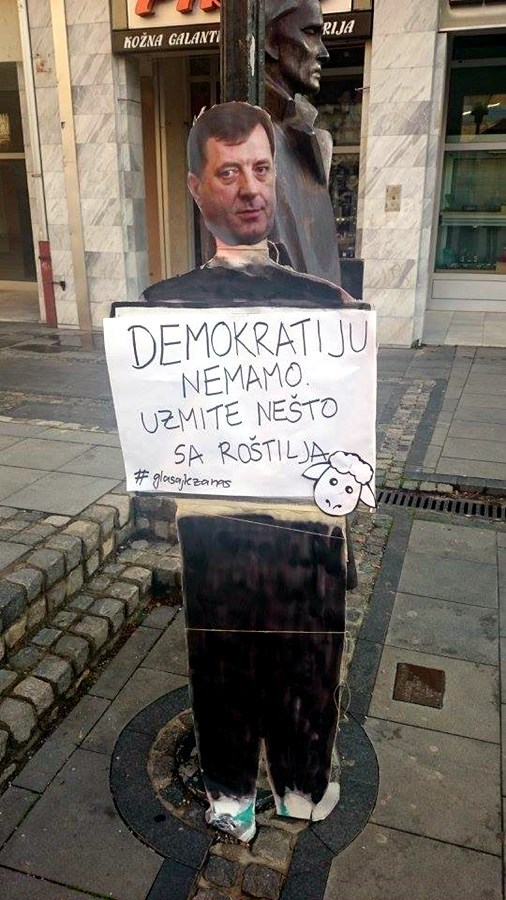 KOŽNA GALANTERIJA
DEMOKRATIJU
NEMAMO.
UZMITE NEŠTO
SA ROŠTILJA
#glasajzanas